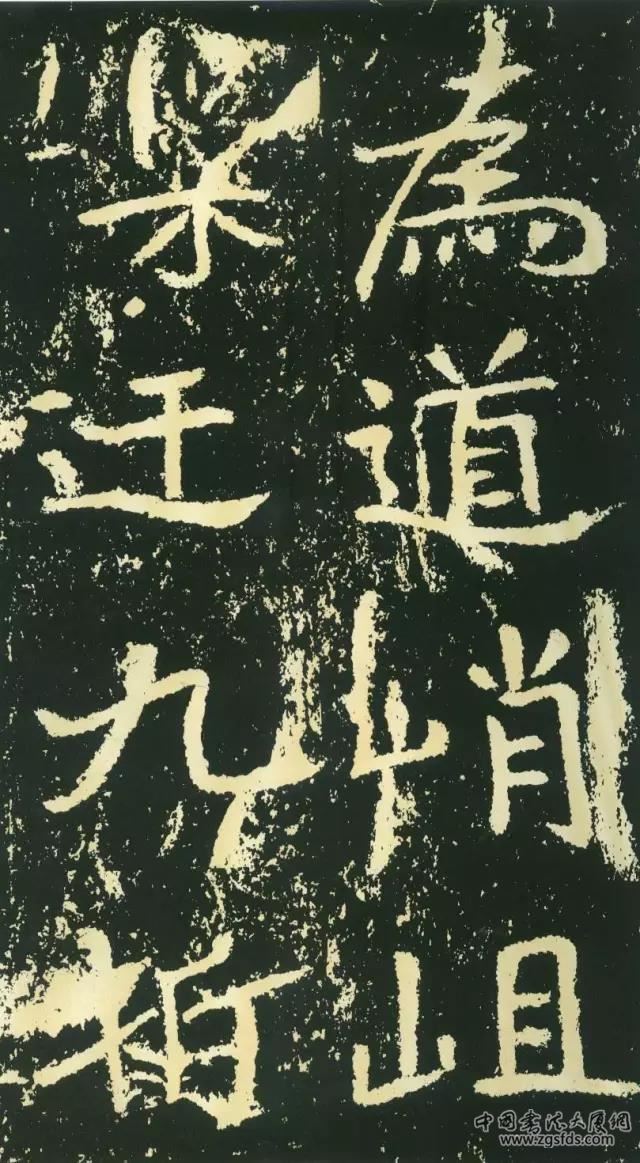 為道峭岨
槃迂九折
中国书法大厦網
www.zgsfds.com